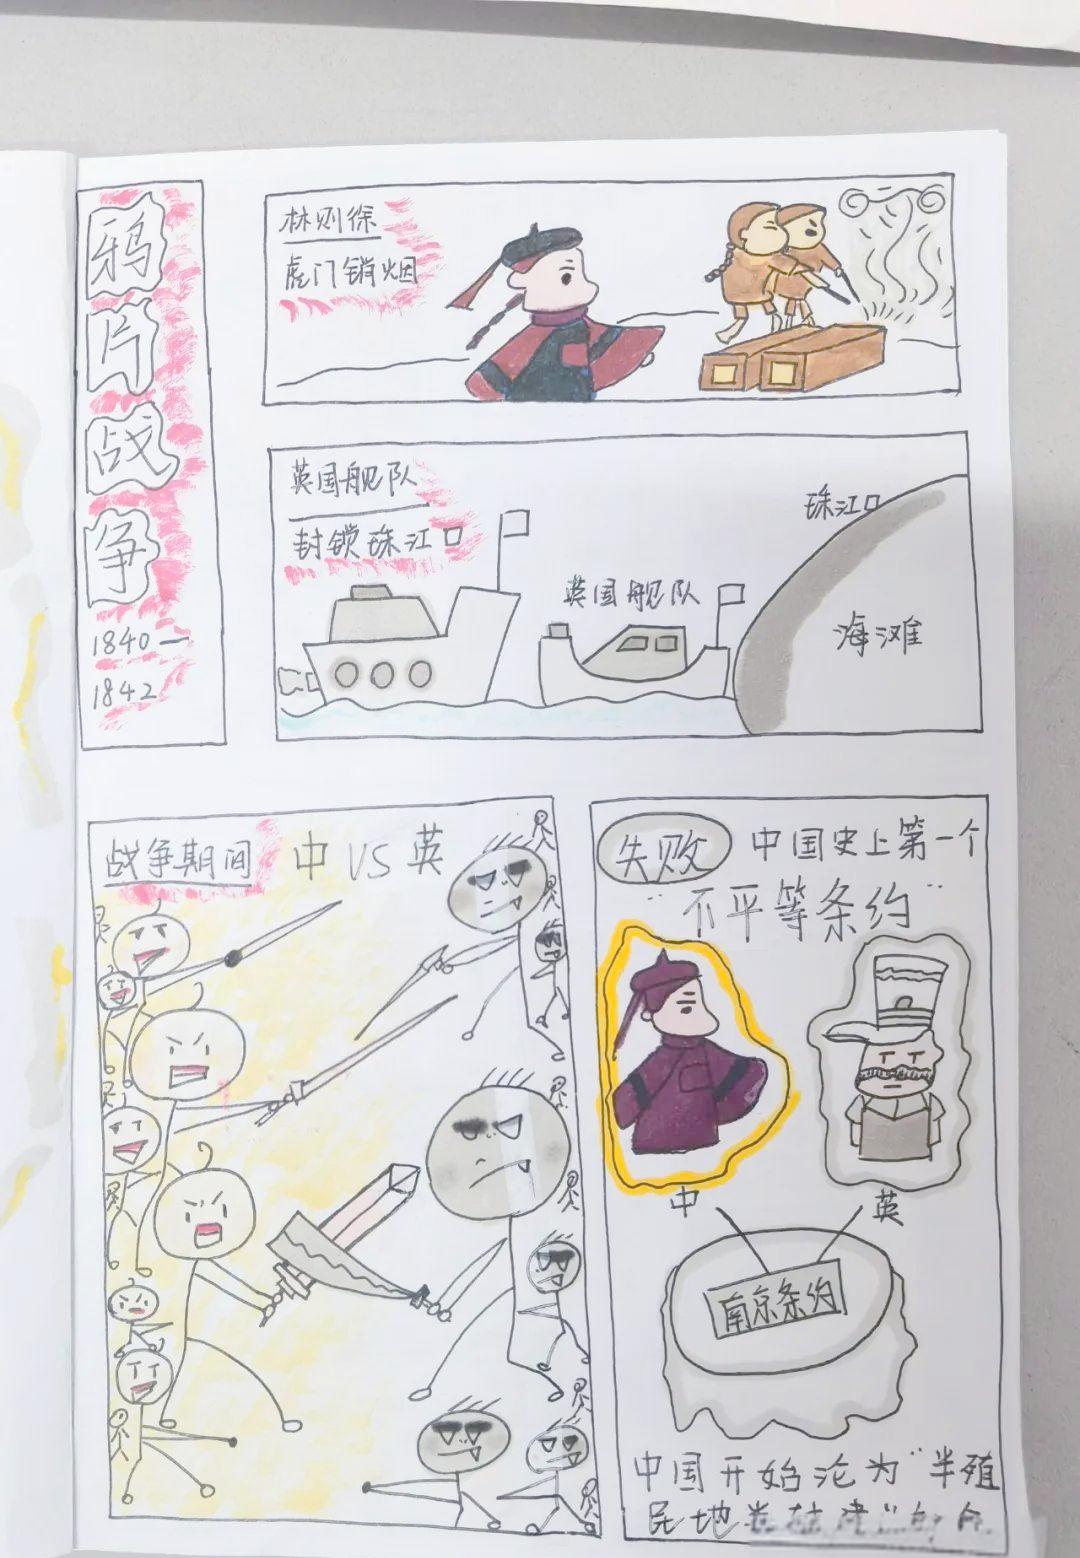 鸦片战争
1840—
1842
林则徐
虎门销烟
英国舰队
封锁珠江口
英国舰队
珠江口
海滩
战争期间 中VS英
失败 中国史上第一个
"不平等条约"
中
英
南京条约
中国开始沦为"半殖
民地半封建"